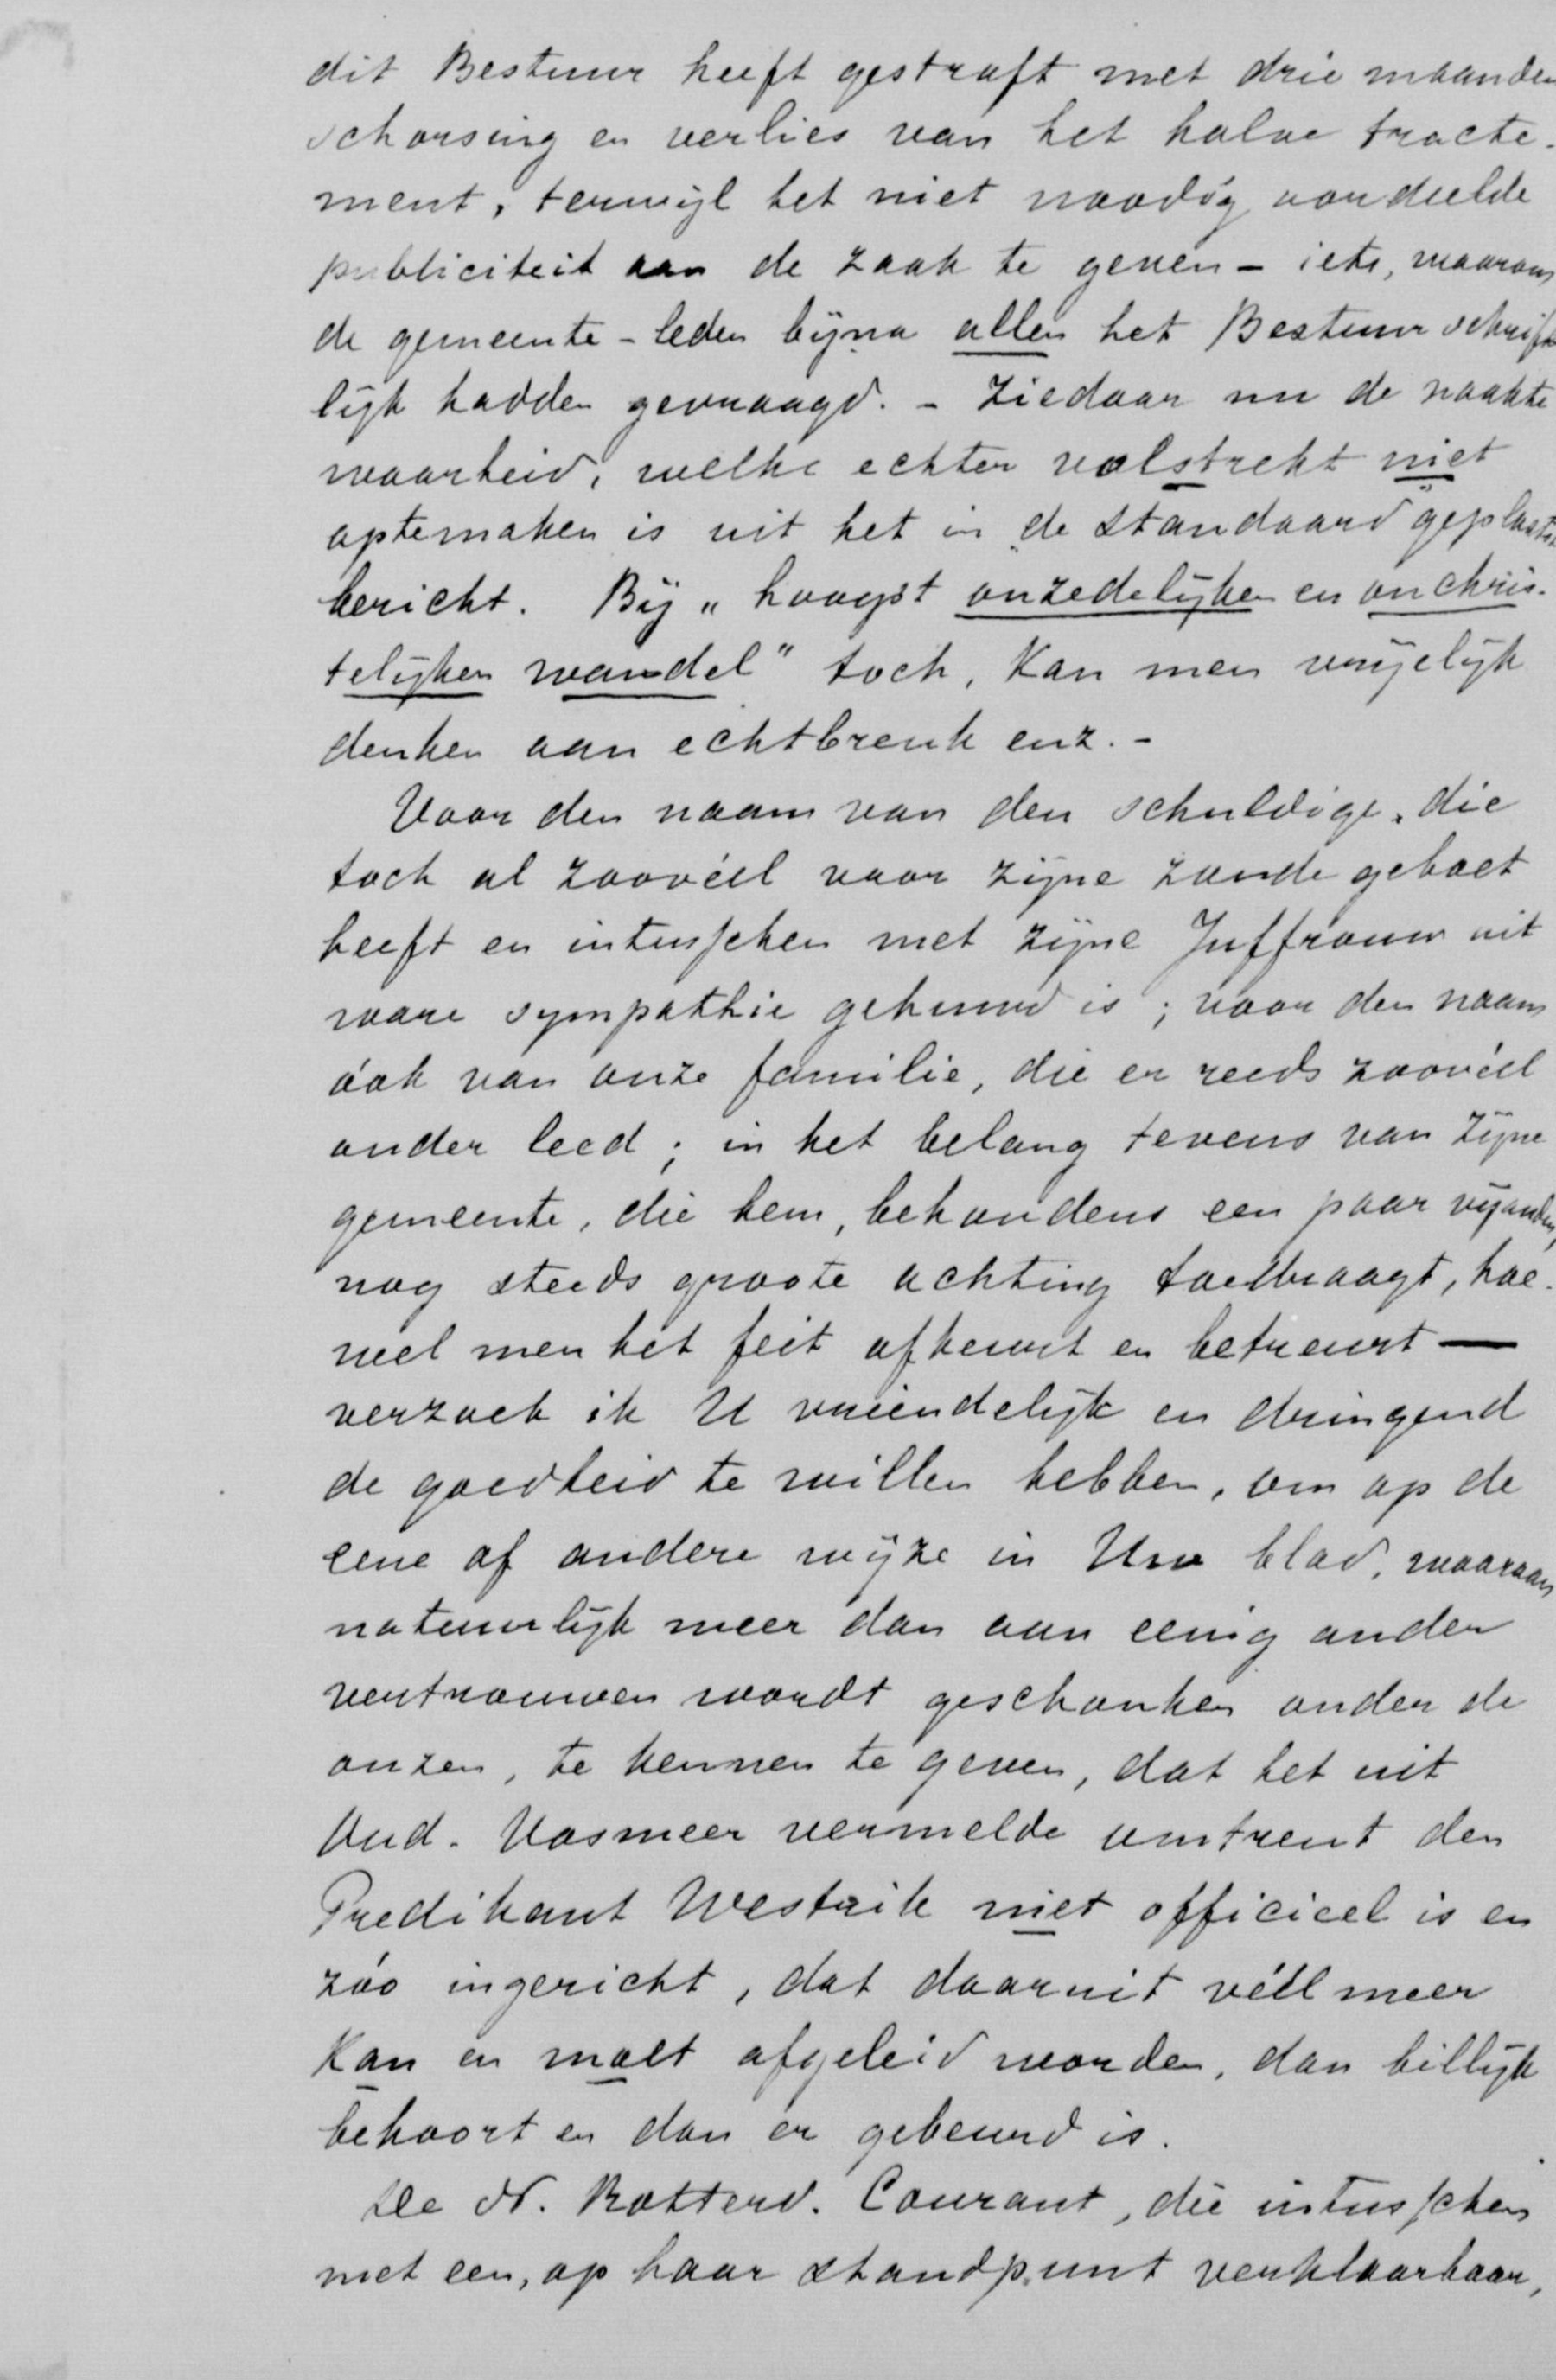 dit Bestuur heeft gestraft met drie maanden
schorsing en verlies van het halve tracte-
ment, terwijl het niet noodig oordeelde
publiciteit aan de zaak te geven – iets, waarom
de gemeente-leden bijna allen het Bestuur schrifte
lijk hadden gevraagd. – Ziedaar nu de naakte
waarheid, welke echter volstrekt niet
optemaken is uit het in „de Standaard" geplaatste
bericht. Bij „hoogst onzedelijken en onchris-
telijken wandel" toch, kan men vrijelijk
denken aan echtbreuk enz. –
Voor den naam van den schuldige, die
toch al zoovéél voor zijne zonde geboet
heeft en intusschen met zijne Juffrouw uit
ware sympathie gehuwd is; voor den naam
óók van onze familie, die er reeds zoovéél
onder leed; in het belang tevens van zijne
gemeente, die hem, behoudens een paar vijanden,
nog steeds groote achting toedraagt, hoe-
wel men het feit afkeurt en betreurt —
verzoek ik U vriendelijk en dringend
de goedheid te willen hebben, om op de
eene of andere wijze in Uw blad, waaraan
natuurlijk meer dan aan eenig ander
vertrouwen wordt geschonken onder de
onzen, te kennen te geven, dat het uit
Oud-Vosmeer vermelde omtrent den
Predikant Westrik niet officieel is en
zóó ingericht, dat daaruit véél meer
kan en moet afgeleid worden, dan billijk
behoort en dan er gebeurd is.
De N. Rotterd. Courant, die intusschen
met een, op haar standpunt verklaarbaar,